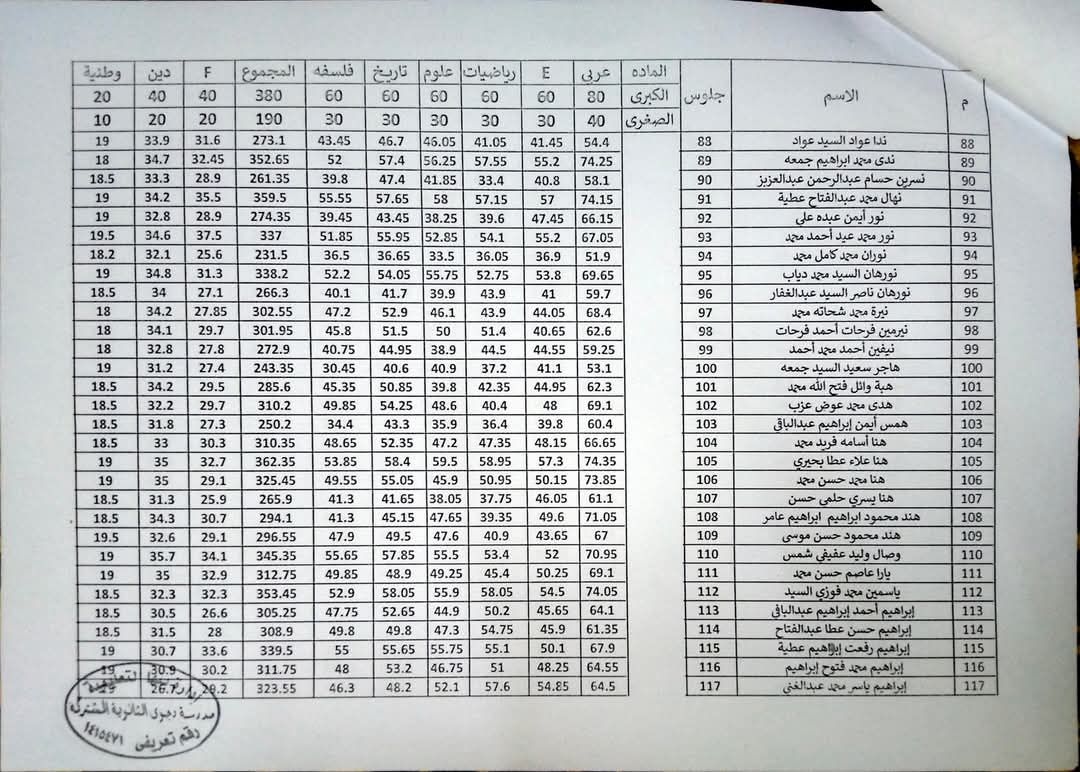 م الاسم جلوس الماده عربي E رياضيات علوم تاريخ فلسفه المجموع F دين وطنية
الكبرى 80 60 60 60 60 60 380 40 40 20
الصغرى 40 30 30 30 30 30 190 20 20 10
88 ندا عواد السيد عواد 88 54.4 41.45 41.05 46.05 46.7 43.45 273.1 31.6 33.9 19
89 ندى محمد ابراهيم جمعه 89 74.25 55.2 57.55 56.25 57.4 52 352.65 32.45 34.7 18
90 نسرين حسام عبدالرحمن عبدالعزيز 90 58.1 40.8 33.4 41.85 47.4 39.8 261.35 28.9 33.3 18.5
91 نهال محمد عبدالفتاح عطية 91 74.15 57 57.15 58 57.65 55.55 359.5 35.5 34.2 19
92 نور أيمن عبده علي 92 66.15 47.45 39.6 38.25 43.45 39.45 274.35 28.9 32.8 19
93 نور محمد عيد أحمد محمد 93 67.05 55.2 54.1 52.85 55.95 51.85 337 37.5 34.6 19.5
94 نوران محمد كامل محمد 94 51.9 36.9 36.05 33.5 36.65 36.5 231.5 25.6 32.1 18.2
95 نورهان السيد محمد دياب 95 69.65 53.8 52.75 55.75 54.05 52.2 338.2 31.3 34.8 19
96 نورهان ناصر السيد عبدالغفار 96 59.7 41 43.9 39.9 41.7 40.1 266.3 27.1 34 18.5
97 نيرة محمد شحاته محمد 97 68.4 44.05 43.9 46.1 52.9 47.2 302.55 27.85 34.2 18
98 نيرمين فرحات أحمد فرحات 98 62.6 40.65 51.4 50 51.5 45.8 301.95 29.7 34.1 18
99 نيفين أحمد محمد أحمد 99 59.25 44.55 44.5 38.9 44.95 40.75 272.9 27.8 32.8 18
100 هاجر سعيد السيد جمعه 100 53.1 41.1 37.2 40.9 40.6 30.45 243.35 27.4 31.2 19
101 هبة وائل فتح الله محمد 101 62.3 44.95 42.35 39.8 50.85 45.35 285.6 29.5 34.2 18.5
102 هدى محمد عوض عزب 102 69.1 48 40.4 48.6 54.25 49.85 310.2 29.7 32.2 18.5
103 همس أيمن إبراهيم عبدالباقي 103 60.4 39.8 36.4 35.9 43.3 34.4 250.2 27.3 31.8 18.5
104 هنا أسامه فريد محمد 104 66.65 48.15 47.35 47.2 52.35 48.65 310.35 30.3 33 18.5
105 هنا علاء عطا بحيري 105 74.35 57.3 58.95 59.5 58.4 53.85 362.35 32.7 35 19
106 هنا محمد حسن محمد 106 73.85 50.15 50.95 45.9 55.05 49.55 325.45 29.1 35 19
107 هنا يسري حلمي حسن 107 61.1 46.05 37.75 38.05 41.65 41.3 265.9 25.9 31.3 18.5
108 هند محمود ابراهيم ابراهيم عامر 108 71.05 49.6 39.35 47.65 45.15 41.3 294.1 30.7 34.3 18.5
109 هند محمود حسن موسى 109 67 43.65 40.9 47.6 49.5 47.9 296.55 29.1 32.6 19.5
110 وصال وليد عفيفي شمس 110 70.95 52 53.4 55.5 57.85 55.65 345.35 34.1 35.7 19
111 يارا عاصم حسن محمد 111 69.1 50.25 45.4 49.25 48.9 49.85 312.75 32.9 35 19
112 ياسمين محمد فوزي السيد 112 74.05 54.5 58.05 55.9 58.05 52.9 353.45 32.3 32.3 18.5
113 إبراهيم أحمد إبراهيم عبدالباقي 113 64.1 45.65 50.2 44.9 52.65 47.75 305.25 26.6 30.5 18.5
114 إبراهيم حسن عطا عبدالفتاح 114 61.35 45.9 54.75 47.3 49.8 49.8 308.9 28 31.5 18.5
115 إبراهيم رفعت إبراهيم عطية 115 67.9 50.1 55.1 55.75 55.65 55 339.5 33.6 30.7 19
116 إبراهيم محمد فتوح إبراهيم 116 64.55 48.25 51 46.75 53.2 48 311.75 30.2 30.9 19
117 إبراهيم ياسر محمد عبدالغني 117 64.5 54.85 57.6 52.1 48.2 46.3 323.55 29.2 26.7
التعليمية
مدرسة دجوى الثانوية المشتركة
رقم تعريفى ١٤١٥٤٧١